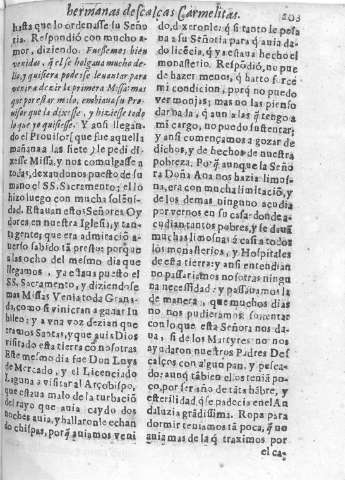 hermanas descalças Carmelitas. 203
hasta que lo ordenasse su Señoria
teria. Respondiò con mucho a-
mor, diziendo. Fuessemos bien
venidas, q̃ el se holgaua mucho de-
llo, y quisiera poderse leuantar para
venir a dezir la primera Missa: mas
que por estar malo, embiaua su Pro
uisor que la dixesse, y hiziesse todo
lo que yo quisiesse. Y ansi llegan-
do el Prouisor, que fue aquella
mañana a las siete, le pedi di-
xesse Missa, y nos comulgasse a
todas, dexandonos puesto de su
mano el SS. Sacramento; el lo
hizo luego con mucha solẽni-
dad. Estauan estos Señores Oy
dores en nuestra Iglesia, y tan-
ta gente; que era admiraciõ a-
uerlo sabido tã presto: porque
a las ocho del mesmo dia que
llegamos, ya estaua puesto el
SS. Sacramento, y diziendose
mas Missas. Venia toda Grana-
da, como si vinieran a ganar Iu
bileo; y a vna voz dezian que
eramos Santas, y que auia Dios
visitado esta tierra cõ nosotras.
Este mesmo dia fue Don Luys
de Mercado, y el Licenciado
Laguna a visitar al Arçobispo,
que estaua malo de la turbaciõ
del rayo que auia caydo dos
noches auia, y hallaronle echan
do chispas, porq̃ auiamos veni
do, dixeronle: q̃ si tanto le pesa
ua a su Señoria para q̃ auia da-
do licẽcia, q̃ ya estaua hecho el
monasterio. Respõdiò, no pu-
de hazer menos, q̃ harto forcè
mi condicion, porq̃ no puedo
ver monjas; mas no las pienso
dar nada, q̃ aun a las q̃ tengo a
mi cargo, no puedo sustentar;
y ansi començamos a gozar de
dichos, y de hechos de nuestra
pobreza. Porq̃ aunque la Seño
ra Doña Ana nos hazia limos-
na, era con mucha limitaciõ, y
de los demas ninguno acudia
por vernos en su casa: donde a-
cudian tantos pobres, y se dauã
muchas limosnas a casi a todos
los monasterios, y Hospitales
de esta tierra: y ansi entendian
no passariamos nosotras ningu
na necessidad: y passauamosla
de manera, que muchos dias
no nos pudieramos sustentar
con lo que esta Señora nos da-
ua, si de los Martyres no nos
ayudaron nuestros Padres Des
calços con algun pan, y pesca-
do: aunq̃ tãbien ellos tenia po-
co, por ser año de tãta hãbre, y
esterilidad, q̃ se padecia en el An
daluzia grãdissima. Ropa para
dormir teniamos tã poca, q̃ no
auia mas de la q̃ traximos por
el ca-